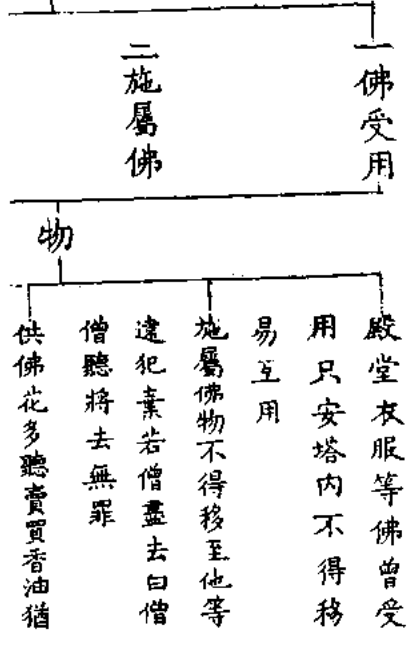 一佛受用
二施屬佛
物
殿堂衣服等佛曾受
用只安塔內不得移
易互用
施屬佛物不得移至他等
違犯棄若僧盡去白僧
僧聽將去無罪
供佛花多聽賣買香油猶